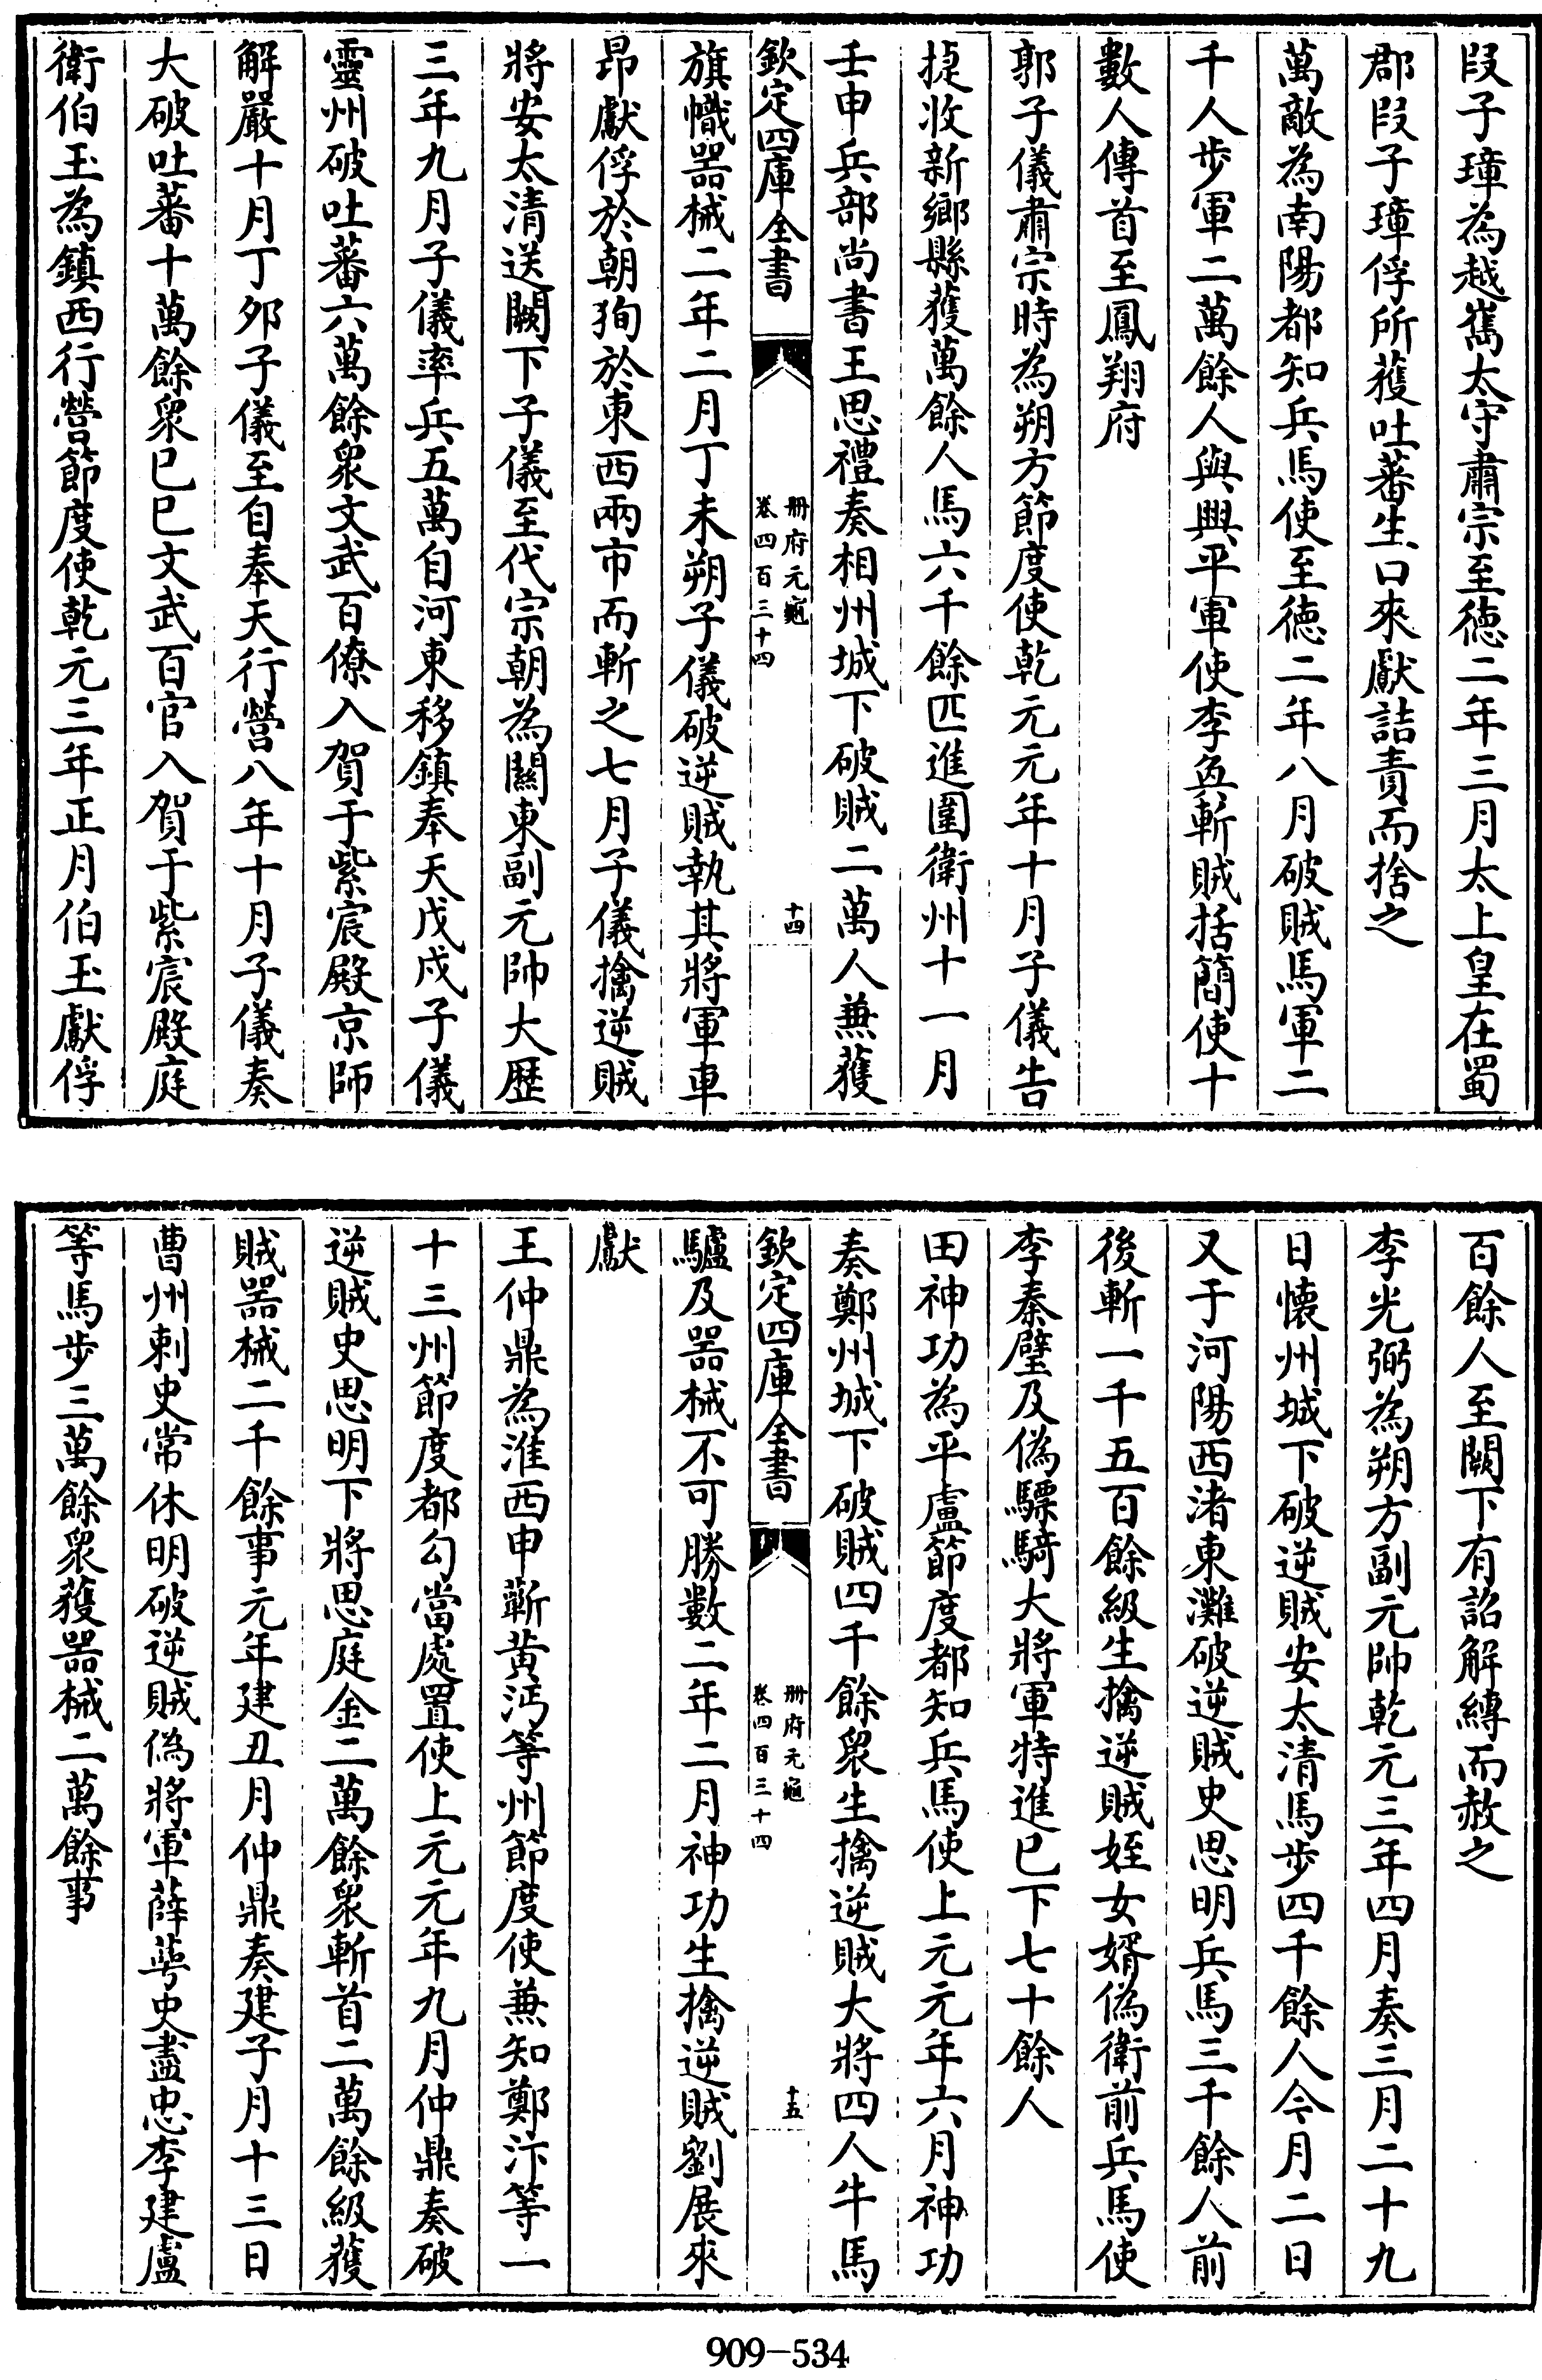 段子璋為越嶲太守肅宗至徳二年三月太上皇在蜀
郡段子璋俘所獲吐蕃生口來獻詰責而捨之
萬敵為南陽都知兵馬使至徳二年八月破賊馬軍二
千人步軍二萬餘人與興平軍使李奐斬賊括簡使十
數人傳首至鳳翔府
郭子儀肅宗時為朔方節度使乾元元年十月子儀告
捷收新鄉縣獲萬餘人馬六千餘匹進圍衛州十一月
壬申兵部尚書王思禮奏相州城下破賊二萬人兼獲
欽定四庫全書
冊府元龜
卷四百三十四
十四
旗幟器械二年二月丁未朔子儀破逆賊執其將軍車
昂獻俘於朝狥於東西兩市而斬之七月子儀擒逆賊
將安太清送闕下子儀至代宗朝為關東副元帥大歴
三年九月子儀率兵五萬自河東移鎮奉天戊戌子儀
靈州破吐蕃六萬餘衆文武百僚入賀于紫宸殿京師
解嚴十月丁夘子儀至自奉天行營八年十月子儀奏
大破吐蕃十萬餘衆已巳文武百官入賀于紫宸殿庭
衛伯玉為鎮西行營節度使乾元三年正月伯玉獻俘
百餘人至闕下有詔解縛而赦之
李光弼為朔方副元帥乾元三年四月奏三月二十九
日懷州城下破逆賊安太清馬步四千餘人今月二日
又于河陽西渚東灘破逆賊史思明兵馬三千餘人前
後斬一千五百餘級生擒逆賊姪女婿偽衛前兵馬使
李秦璧及偽驃騎大將軍特進已下七十餘人
田神功為平盧節度都知兵馬使上元元年六月神功
奏鄭州城下破賊四千餘衆生擒逆賊大將四人牛馬
欽定四庫全書
冊府元龜
卷四百三十四
十五
驢及器械不可勝數二年二月神功生擒逆賊劉展來
獻
王仲鼎為淮西申蘄黃沔等州節度使兼知鄭汴等一
十三州節度都勾當處置使上元元年九月仲鼎奏破
逆賊史思明下將思庭金二萬餘衆斬首二萬餘級獲
賊器械二千餘事元年建丑月仲鼎奏建子月十三日
曹州刺史常休明破逆賊偽將軍薛萼史盡忠李建盧
等馬步三萬餘衆獲器械二萬餘事
909-534